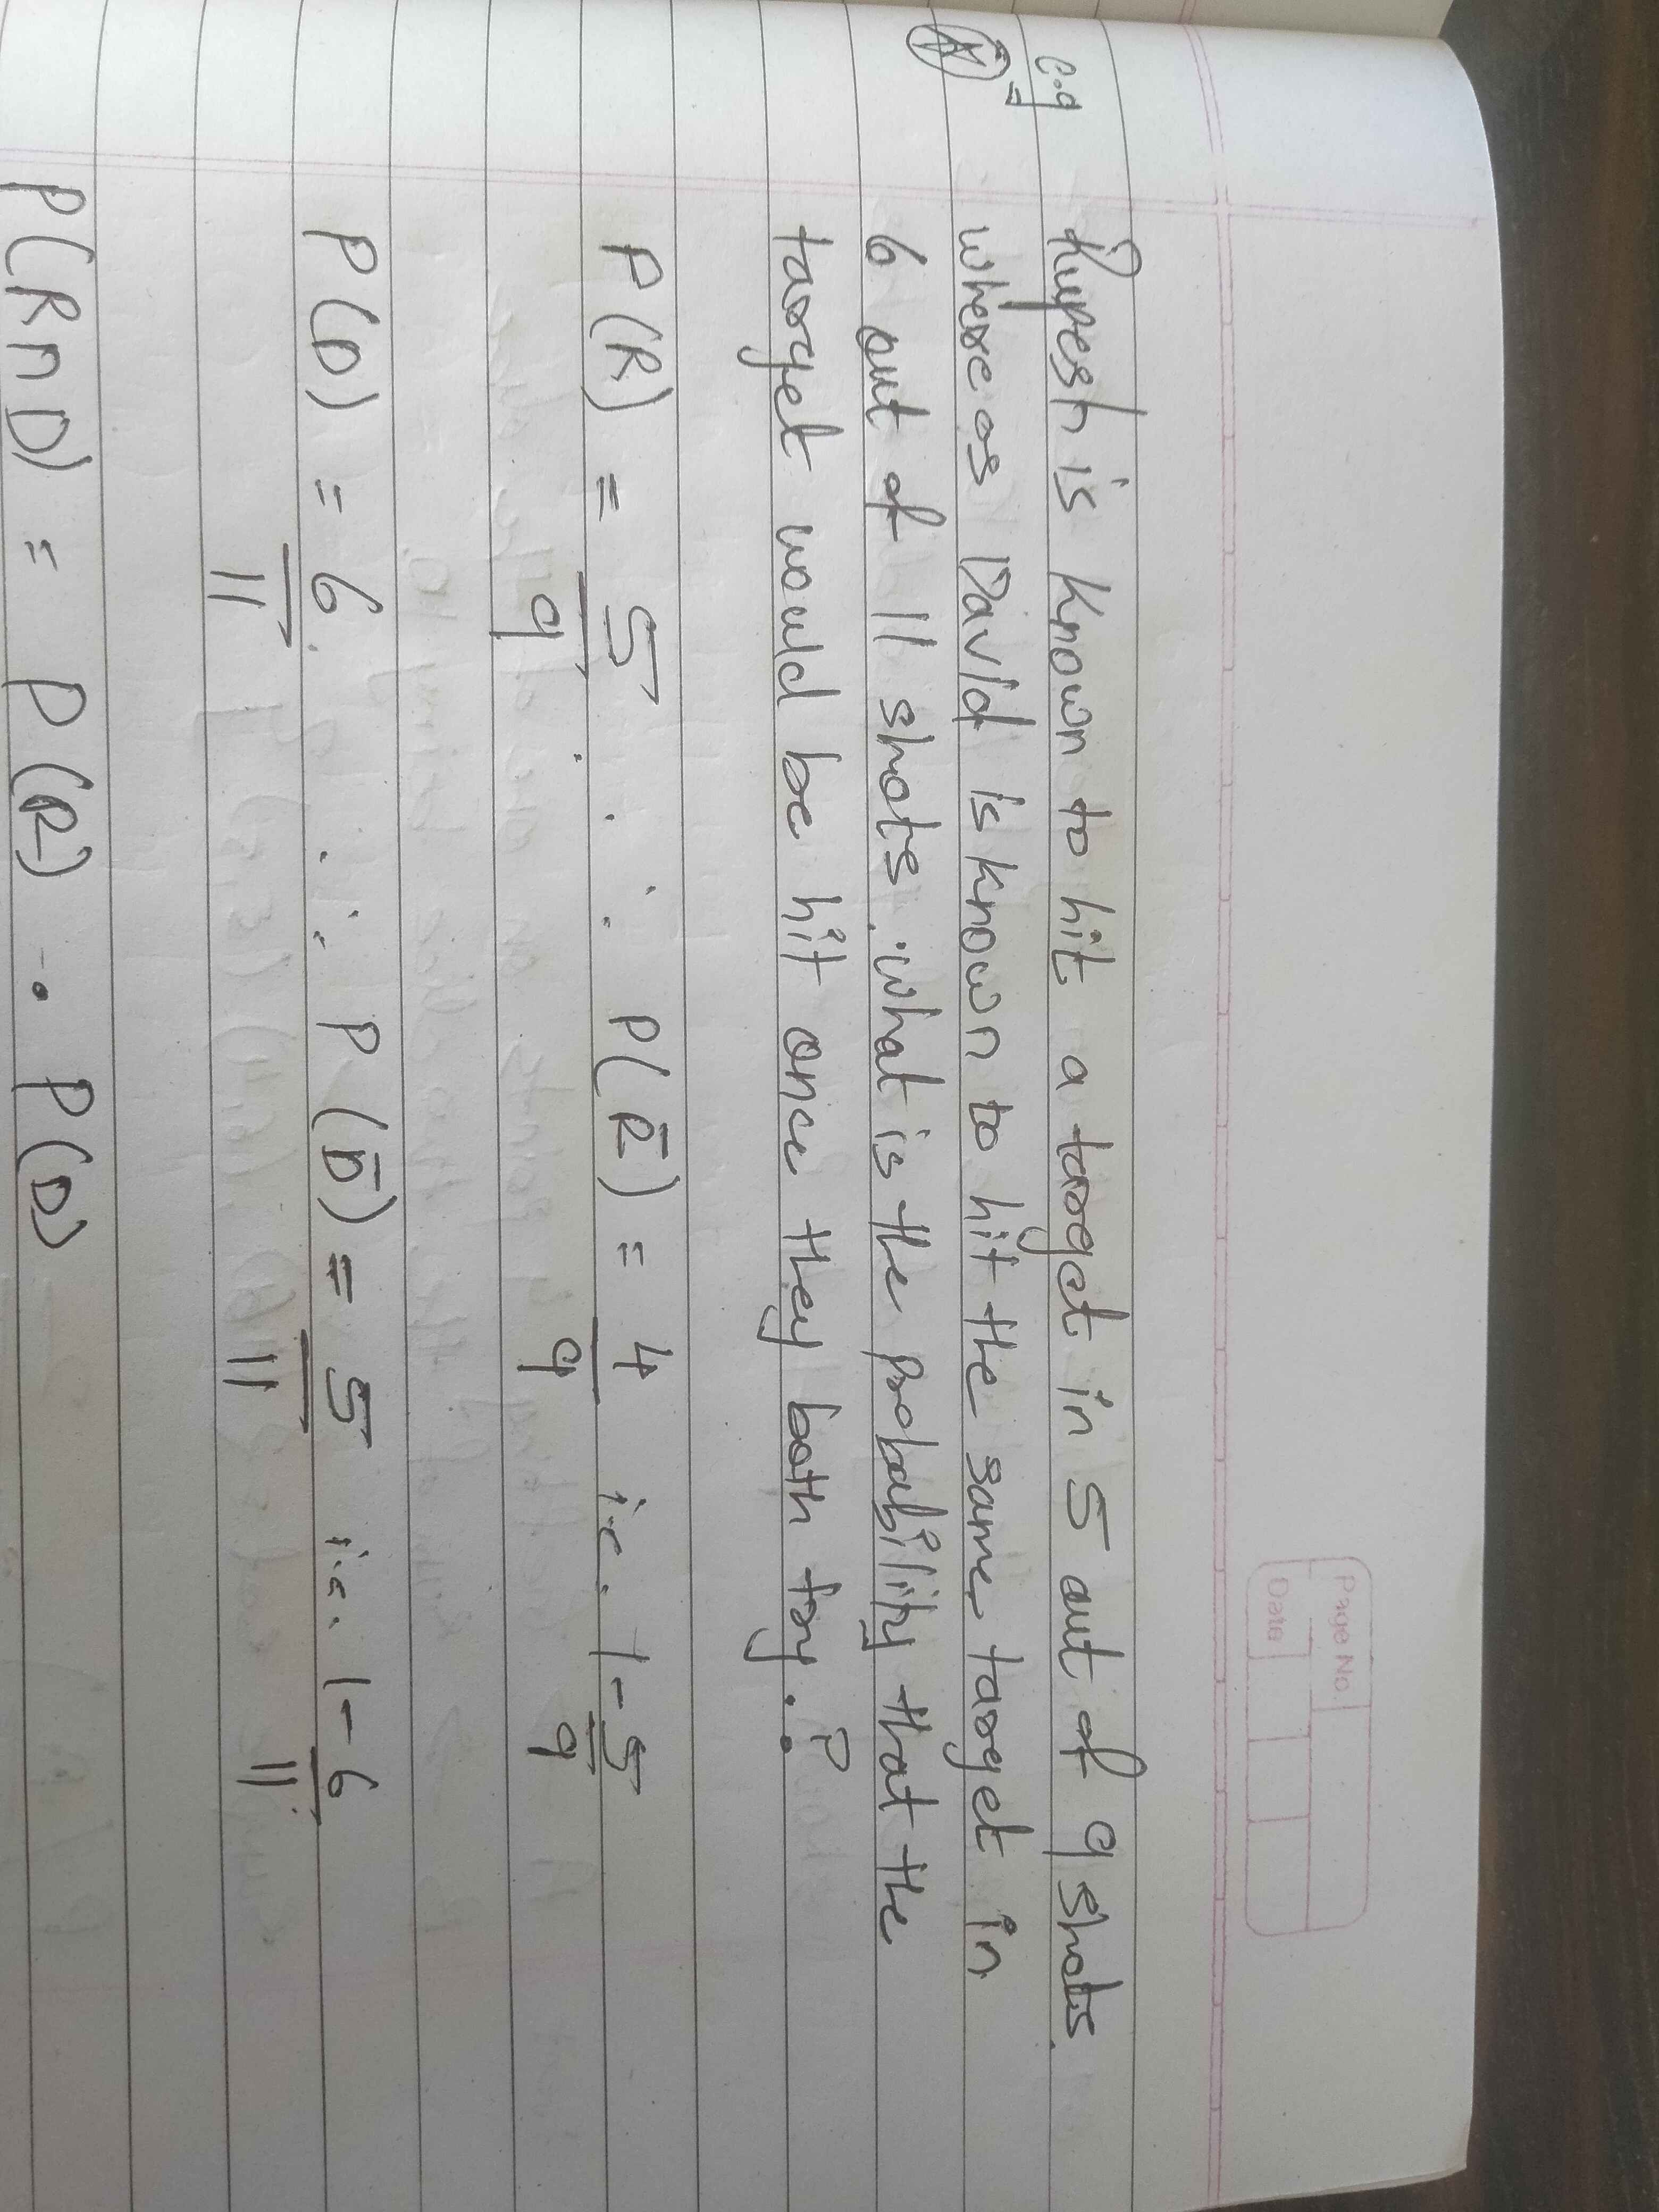 Page No.
Date
e.g Rupesh is known to hit a target in 5 out of 9 shots
whereas David is known to hit the same target in
6 out of 11 shots. what is the probability that the
target would be hit once they both try. ?
P(R) = 5/9 ∴ P(R̅) = 4/9 i.e. 1-5/9
P(D) = 6/11 ∴ P(D̅) = 5/11 i.e. 1-6/11
P(R∩D) = P(R) . P(D)